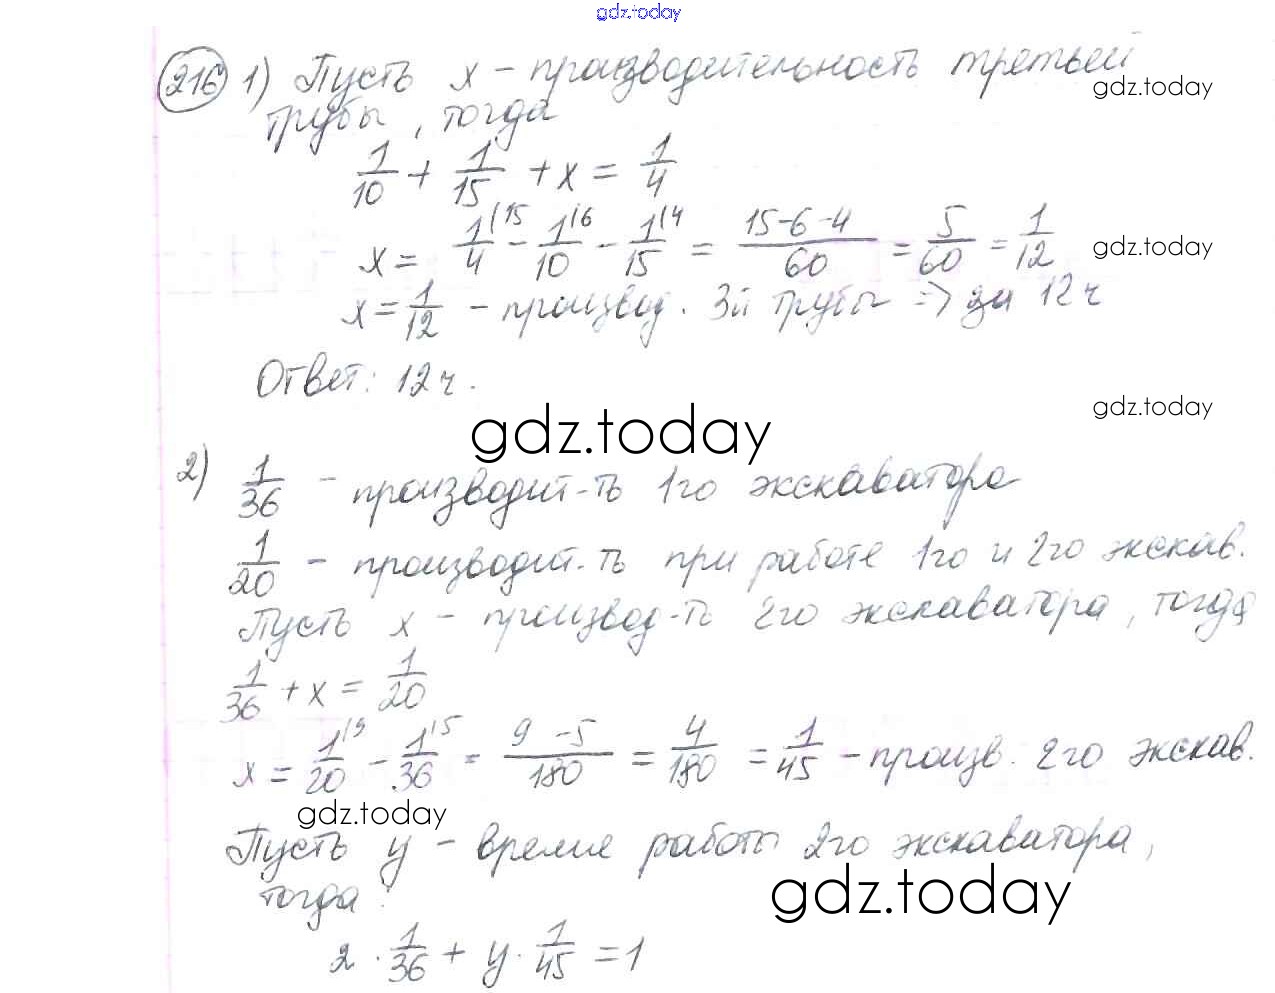 gdz.today
216 1) Пусть x – производительность третьей
gdz.today
трубы, тогда
1/10 + 1/15 + x = 1/4
x = 1/4 (15 - 1/10 (6 - 1/15 (4 = (15-6-4)/60 = 5/60 = 1/12
gdz.today
x = 1/12 – производ. 3й трубы => за 12ч
Ответ: 12ч.
gdz.today
gdz.today
2) 1/36 – производит-ть 1го экскаватора
1/20 – производит-ть при работе 1го и 2го экскав.
Пусть x – производ-ть 2го экскаватора, тогда
1/36 + x = 1/20
x = 1/20 (9 - 1/36 (5 = (9-5)/180 = 4/180 = 1/45 – произв. 2го экскав.
gdz.today
Пусть y – время работы 2го экскаватора,
gdz.today
тогда:
2 · 1/36 + y · 1/45 = 1